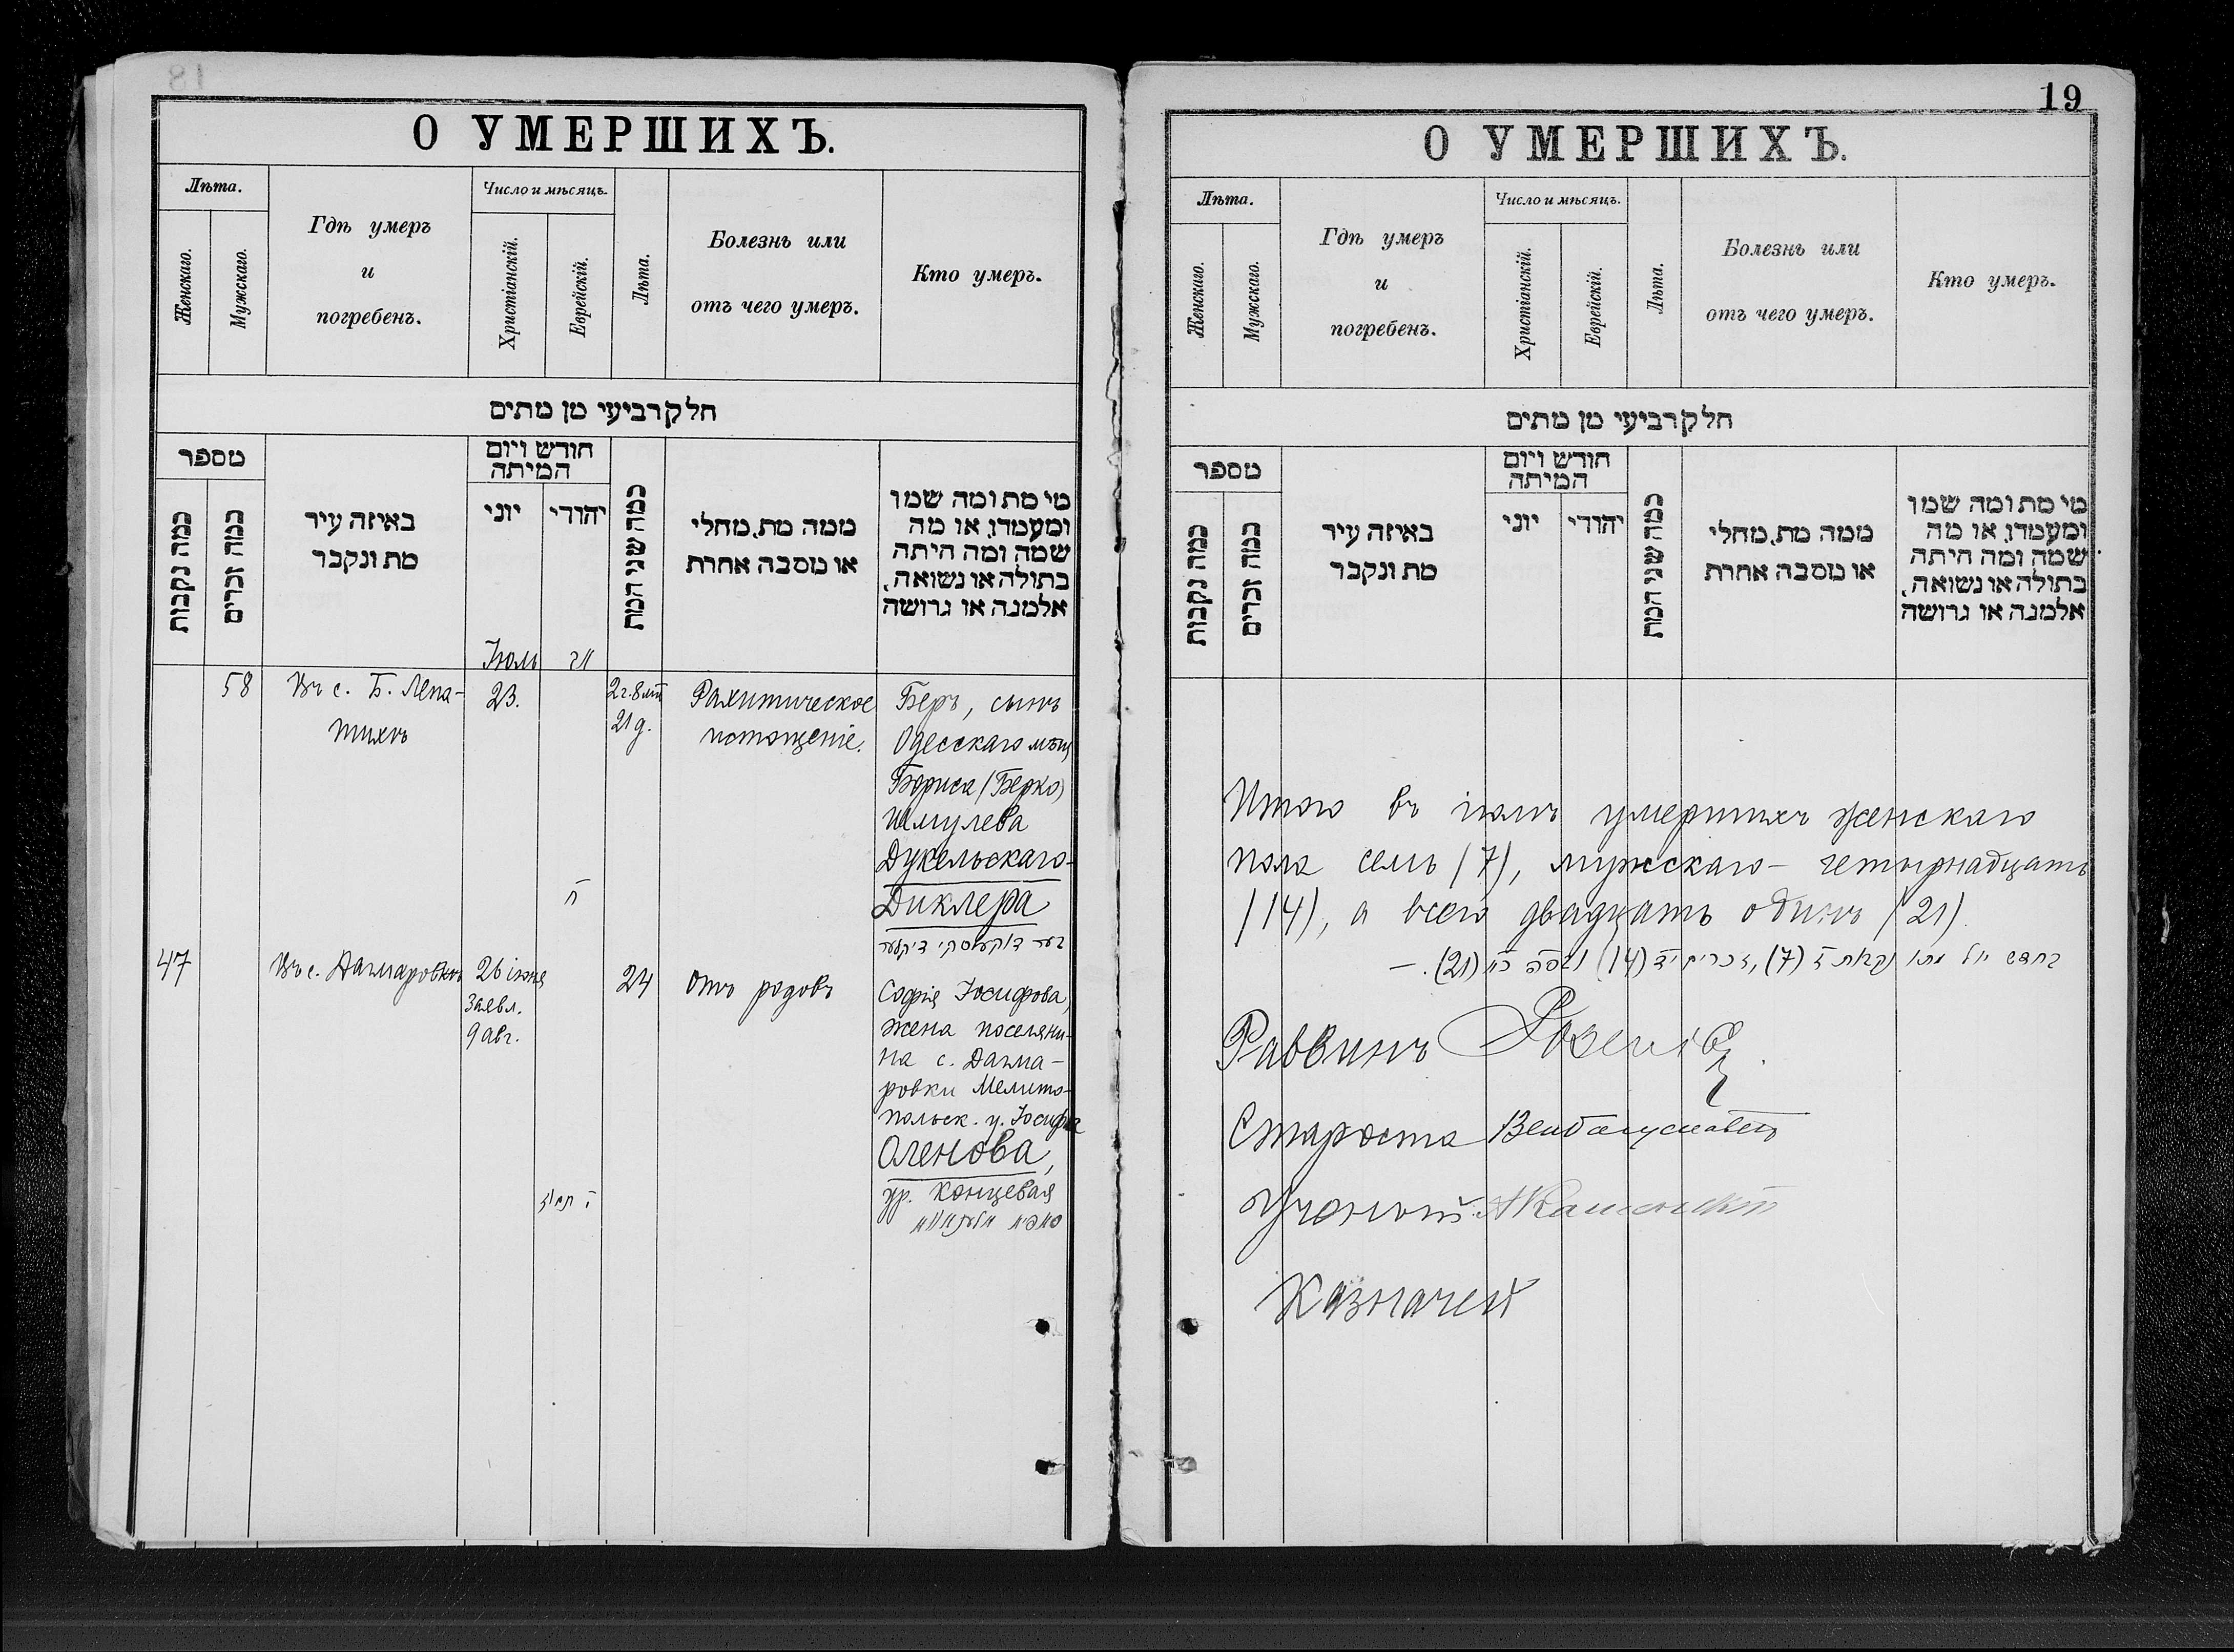 18
О УМЕРШИХЪ.
Лѣта.
Женскаго.
Мужскаго.
Гдѣ умеръ
и
погребенъ.
Число и мѣсяцъ.
Христіанскій.
Еврейскій.
Лѣта.
Болезнь или
отъ чего умеръ.
Кто умеръ.
חלק רביעי מן מתים
מספר
כמה נקבות
כמה זכרים
באיזה עיר
מת ונקבר
חודש ויום
המיתה
יוני
יהודי
כמה שני המת
ממה מת, מחלי
או מסבה אחרת
מי מת ומה שמו
ומעמדו, או מה
שמה ומה היתה
בתולה או נשואה,
אלמנה או גרושה
Іюль
58
Въ с. Б. Лепа-
тихѣ
23.
2 г. 8 м.
21 д.
Рахитическое
истощеніе.
Беръ, сынъ
Одесскаго мѣщ
Бориса (Берко)
Шмулева
Дукельскаго-
Диклера
47
Въ с. Дагмаровкѣ
26 іюня
Заявл.
9 авг.
24
Отъ родовъ
Софія Іосифова,
жена поселяни-
на с. Дагма-
ровки Мелито-
польск. у. Іосифа
Оленова,
ур. Концевая
19
О УМЕРШИХЪ.
Лѣта.
Женскаго.
Мужскаго.
Гдѣ умеръ
и
погребенъ.
Число и мѣсяцъ.
Христіанскій.
Еврейскій.
Лѣта.
Болезнь или
отъ чего умеръ.
Кто умеръ.
חלק רביעי מן מתים
מספר
כמה נקבות
כמה זכרים
באיזה עיר
מת ונקבר
חודש ויום
המיתה
יוני
יהודי
כמה שני המת
ממה מת, מחלי
או מסבה אחרת
מי מת ומה שמו
ומעמדו, או מה
שמה ומה היתה
בתולה או נשואה,
אלמנה או גרושה
Итого въ іюлѣ умершихъ женскаго
пола семь (7), мужскаго - четырнадцать
(14), а всего двадцать одинъ (21).
(7), (14) (21). —
Раввинъ
Староста
Ученый
Казначей